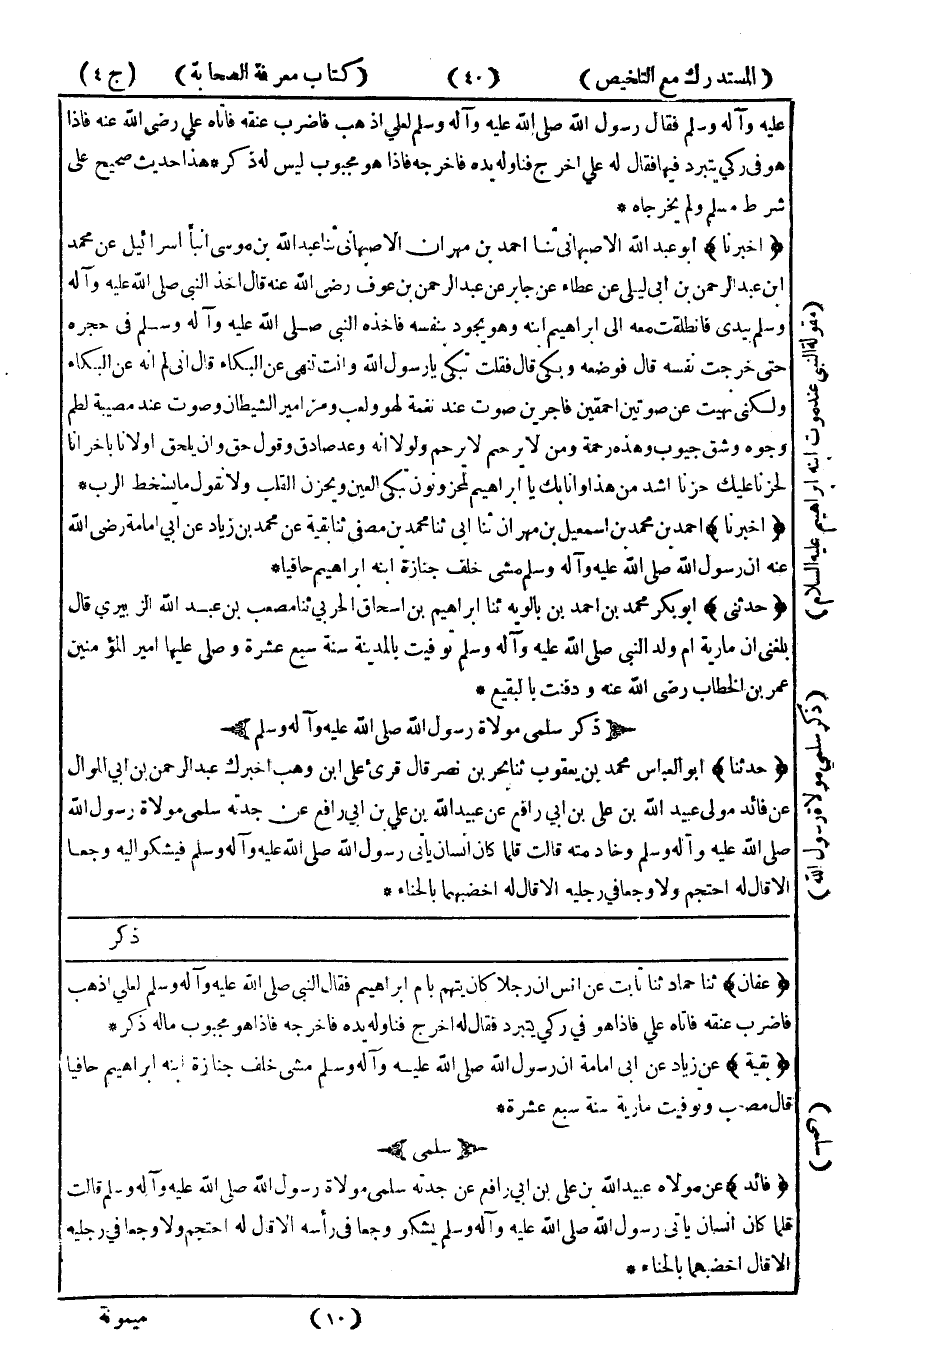 (المستدرك مع التلخيص) (٤٠) (كتاب معرفة الصحابة) (ج ٤)
عليه وآله وسلم فقال رسول الله صلى الله عليه وآله وسلم لعلي اذهب فاضرب عنقه فاتاه علي رضى الله عنه فاذا
هو فى ركي يتبرد فيها فقال له علي اخرج فناوله يده فاخرجه فاذا هو مجبوب ليس له ذكر * هذا حديث صحيح على
شرط مسلم ولم يخرجاه *
﴿ اخبرنا ﴾ ابو عبد الله الاصبهانى ثنا احمد بن مهران الاصبهانى ثنا عبد الله بن موسى انبأ اسرائيل عن محمد
ابن عبد الرحمن بن ابى ليلى عن عطاء عن جابر عن عبد الرحمن بن عوف رضى الله عنه قال اخذ النبي صلى الله عليه وآله
وسلم بيدى فانطلقت معه الى ابراهيم ابنه وهو يجود بنفسه فاخذه النبي صلى الله عليه وآله وسلم فى حجره
حتى خرجت نفسه قال فوضعه وبكى قال فقلت تبكي يارسول الله وانت تنهى عن البكاء قال انى لم انه عن البكاء
ولكنى نهيت عن صوتين احمقين فاجرين صوت عند نغمة لهو ولعب ومزامير الشيطان وصوت عند مصيبة لطم
وجوه وشق جيوب وهذه رحمة ومن لا يرحم لا يرحم ولولا انه وعد صادق وقول حق وان يلحق اولانا باخرانا
لحزنا عليك حزنا اشد من هذا وانا بك يا ابراهيم لمحزونون تبكى العين ويحزن القلب ولا نقول ما يسخط الرب *
﴿ اخبرنا ﴾ احمد بن محمد بن اسمعيل بن مهران ثنا ابى ثنا محمد بن مصفى ثنا بقية عن محمد بن زياد عن ابي امامة رضى الله
عنه ان رسول الله صلى الله عليه وآله وسلم مشى خلف جنازة ابنه ابراهيم حافيا *
﴿ حدثنى ﴾ ابو بكر محمد بن احمد بن بالويه ثنا ابراهيم بن اسحاق الحربي ثنا مصعب بن عبد الله الزبيري قال
بلغنى ان مارية ام ولد النبي صلى الله عليه وآله وسلم توفيت بالمدينة سنة سبع عشرة وصلى عليها امير المؤمنين
عمر بن الخطاب رضى الله عنه ودفنت بالبقيع *
ذكر سلمى مولاة رسول الله صلى الله عليه وآله وسلم
﴿ حدثنا ﴾ ابو العباس محمد بن يعقوب ثنا بحر بن نصر قال قرئ على ابن وهب اخبرك عبد الرحمن بن ابي الموال
عن فائد مولى عبيد الله بن على بن ابي رافع عن عبيد الله بن علي بن ابي رافع عن جدته سلمى مولاة رسول الله
صلى الله عليه وآله وسلم وخادمته قالت قلما كان انسان يأتى رسول الله صلى الله عليه وآله وسلم فيشكو اليه وجعا
الا قال له احتجم ولا وجعا في رجليه الا قال له اخضبهما بالحناء *
ذكر
﴿ عفان ﴾ ثنا حماد ثنا ثابت عن انس ان رجلا كان يتهم بام ابراهيم فقال النبي صلى الله عليه وآله وسلم لعلي اذهب
فاضرب عنقه فاتاه علي فاذا هو في ركي يتبرد فقال له اخرج فناوله يده فاخرجه فاذا هو مجبوب ماله ذكر *
﴿ بقية ﴾ عن زياد عن ابى امامة ان رسول الله صلى الله عليه وآله وسلم مشى خلف جنازة ابنه ابراهيم حافيا
قال مصعب وتوفيت مارية سنة سبع عشرة *
سلمى
﴿ فائد ﴾ عن مولاه عبيد الله بن على بن ابي رافع عن جدته سلمى مولاة رسول الله صلى الله عليه وآله وسلم قالت
قلما كان انسان يأتى رسول الله صلى الله عليه وآله وسلم يشكو وجعا فى رأسه الا قال له احتجم ولا وجعا في رجليه
الا قال اخضبهما بالحناء *
(مقولة النبي عند موت ابنه ابراهيم عليه السلام)
(ذكر سلمى مولاة رسول الله)
(سلمى)
(١٠) ميمونة